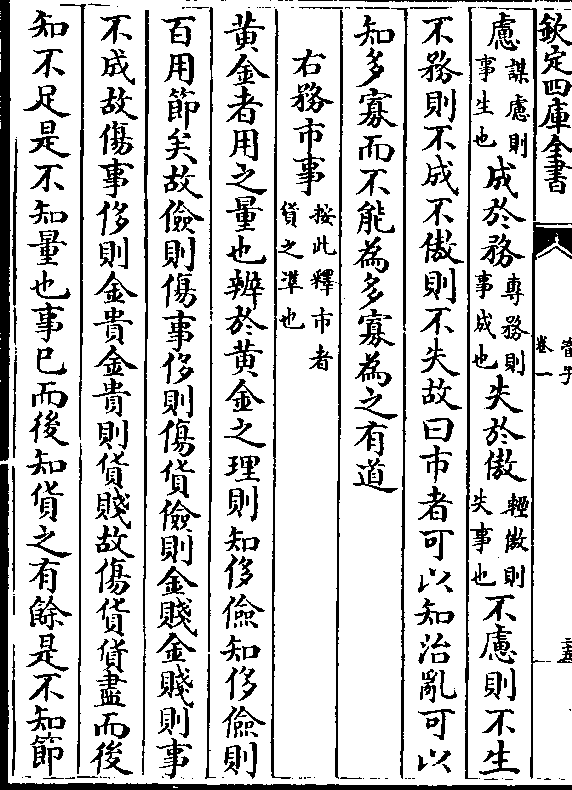 欽定四庫全書
管子
卷一
慮謀慮則事生也成於務專務則事成也失於傲輕傲則失事也不慮則不生
不務則不成不傲則不失故曰市者可以知治亂可以
知多寡而不能為多寡為之有道
右務市事按此釋市者貨之準也
黃金者用之量也辨於黃金之理則知侈儉知侈儉則
百用節矣故儉則傷事侈則傷貨儉則金賤金賤則事
不成故傷事侈則金貴金貴則貨賤故傷貨貨盡而後
知不足是不知量也事已而後知貨之有餘是不知節